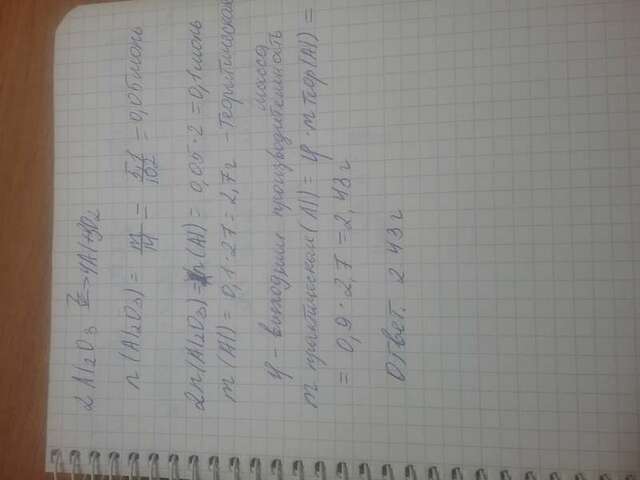 2 Al₂O₃ → 4Al + 3O₂
n (Al₂O₃) = m/M = 5,1/102 = 0,05 моль
2n(Al₂O₃) = n(Al) = 0,05 · 2 = 0,1 моль
m (Al) = 0,1 · 27 = 2,7 г - теоритическая
масса
φ - выходные производительность
m практическом (Al) = φ · m теор (Al) =
= 0,9 · 2,7 = 2,43 г
Ответ. 2 43 г